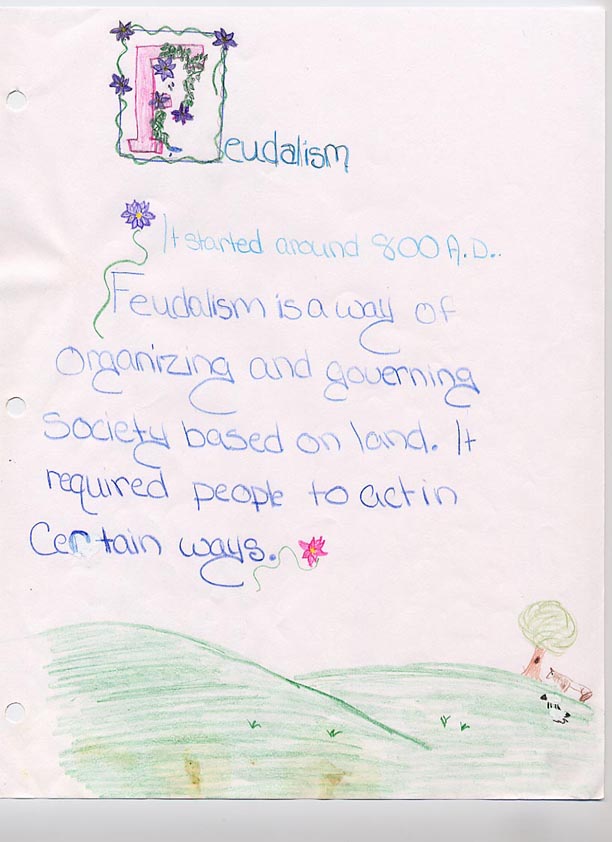 Feudalism
It started around 800 A.D..
Feudalism is a way of
organizing and governing
society based on land. It
required people to act in
Certain ways.